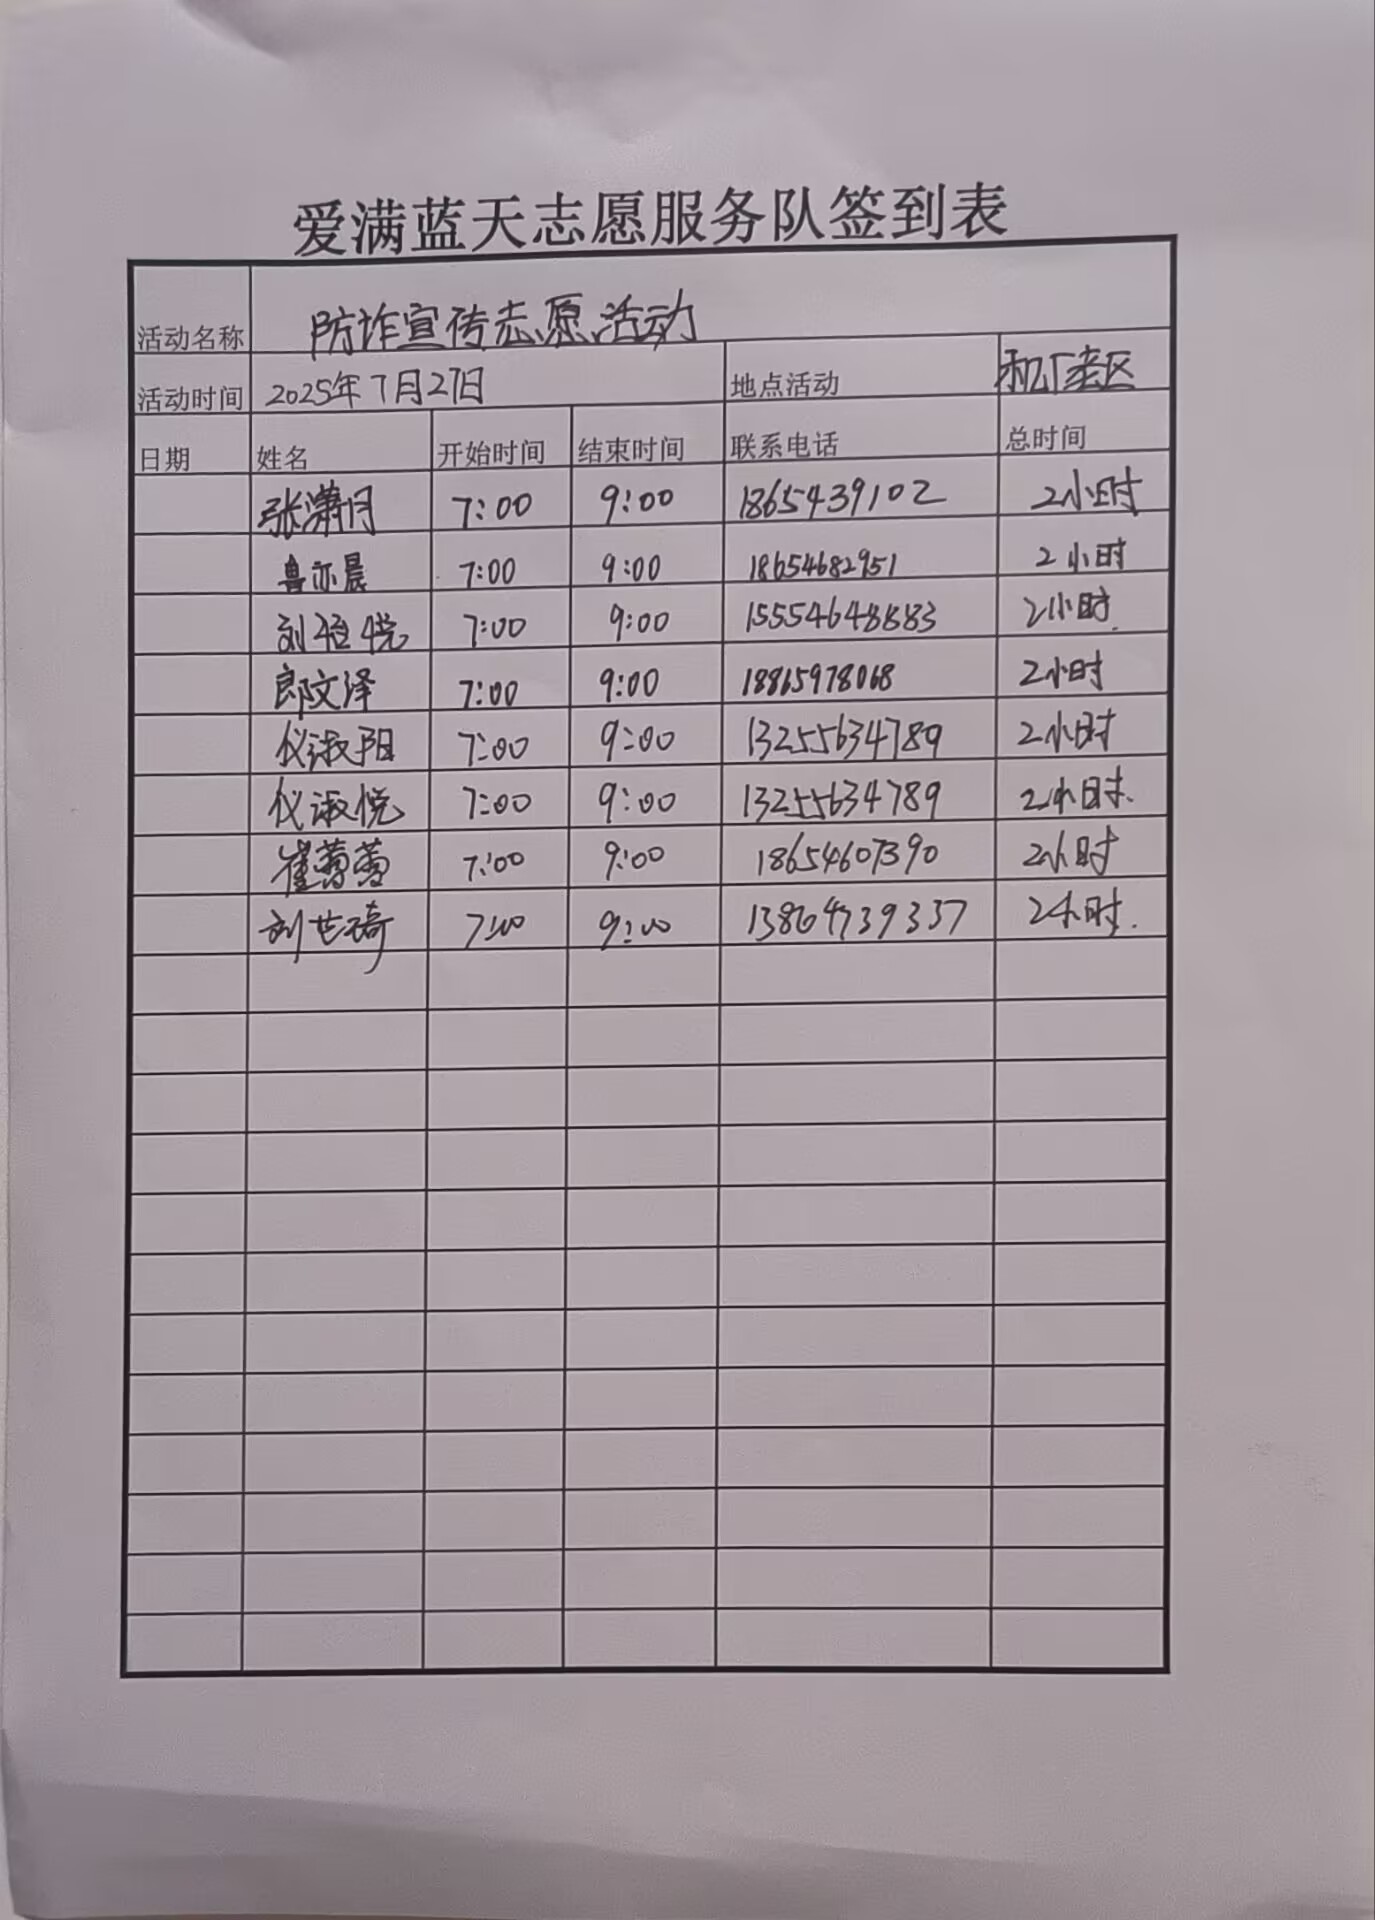 爱满蓝天志愿服务队签到表
活动名称 防诈宣传志愿活动
活动时间 2025年7月27日 地点活动 机厂老区
日期 姓名 开始时间 结束时间 联系电话 总时间
张潇月 7:00 9:00 1865439102 2小时
鲁亦晨 7:00 9:00 18654682951 2小时
刘恒悦 7:00 9:00 15554648883 2小时
郎文泽 7:00 9:00 18865978068 2小时
仪淑阳 7:00 9:00 13255634789 2小时
仪淑悦 7:00 9:00 13255634789 2小时.
崔蕾蕾 7:00 9:00 18654607390 2小时
刘芸琦 7:00 9:00 13864739337 2小时.